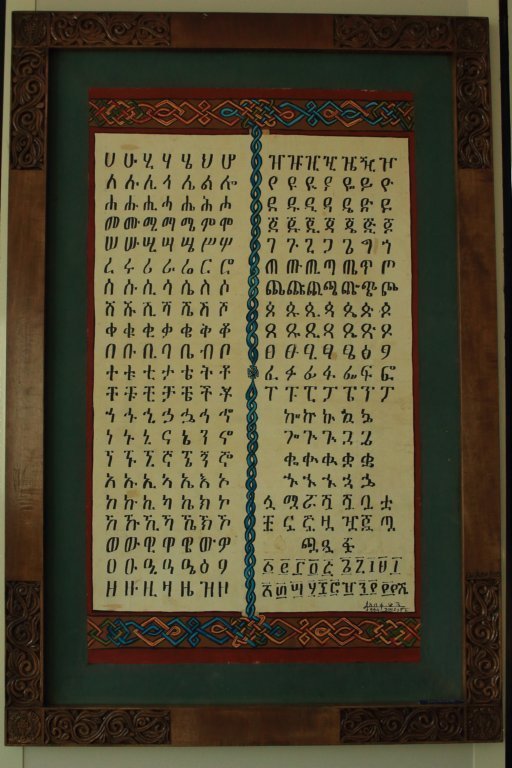 ሀ ሁ ሂ ሃ ሄ ህ ሆ
ለ ሉ ሊ ላ ሌ ል ሎ
ሐ ሑ ሒ ሓ ሔ ሕ ሖ
መ ሙ ሚ ማ ሜ ም ሞ
ሠ ሡ ሢ ሣ ሤ ሥ ሦ
ረ ሩ ሪ ራ ሬ ር ሮ
ሰ ሱ ሲ ሳ ሴ ስ ሶ
ሸ ሹ ሺ ሻ ሼ ሽ ሾ
ቀ ቁ ቂ ቃ ቄ ቅ ቆ
በ ቡ ቢ ባ ቤ ብ ቦ
ተ ቱ ቲ ታ ቴ ት ቶ
ቸ ቹ ቺ ቻ ቼ ች ቾ
ኀ ኁ ኂ ኃ ኄ ኅ ኆ
ነ ኑ ኒ ና ኔ ን ኖ
ኘ ኙ ኚ ኛ ኜ ኝ ኞ
አ ኡ ኢ ኣ ኤ እ ኦ
ከ ኩ ኪ ካ ኬ ክ ኮ
ኸ ኹ ኺ ኻ ኼ ኽ ኾ
ወ ዉ ዊ ዋ ዌ ው ዎ
ዐ ዑ ዒ ዓ ዔ ዕ ዖ
ዘ ዙ ዚ ዛ ዜ ዝ ዞ
ዠ ዡ ዢ ዣ ዤ ዥ ዦ
የ ዩ ዪ ያ ዬ ይ ዮ
ደ ዱ ዲ ዳ ዴ ድ ዶ
ጀ ጁ ጂ ጃ ጄ ጅ ጆ
ገ ጉ ጊ ጋ ጌ ግ ጎ
ጠ ጡ ጢ ጣ ጤ ጥ ጦ
ጨ ጩ ጪ ጫ ጬ ጭ ጮ
ጰ ጱ ጲ ጳ ጴ ጵ ጶ
ጸ ጹ ጺ ጻ ጼ ጽ ጾ
ፀ ፁ ፂ ፃ ፄ ፅ ፆ
ፈ ፉ ፊ ፋ ፌ ፍ ፎ
ፐ ፑ ፒ ፓ ፔ ፕ ፖ
ኰ ኵ ኲ ኳ ኴ
ጐ ጕ ጒ ጓ ጔ
ቈ ቍ ቊ ቋ ቌ
ኈ ኍ ኊ ኋ ኌ
ሏ ሟ ሯ ሷ ሿ ቧ ቷ
ቿ ኗ ኟ ዟ ዧ ጇ ጧ
ጯ ጿ ፏ
፩ ፪ ፫ ፬ ፭ ፮ ፯ ፰ ፱ ፲
፳ ፴ ፵ ፶ ፷ ፸ ፹ ፺ ፻ ፼